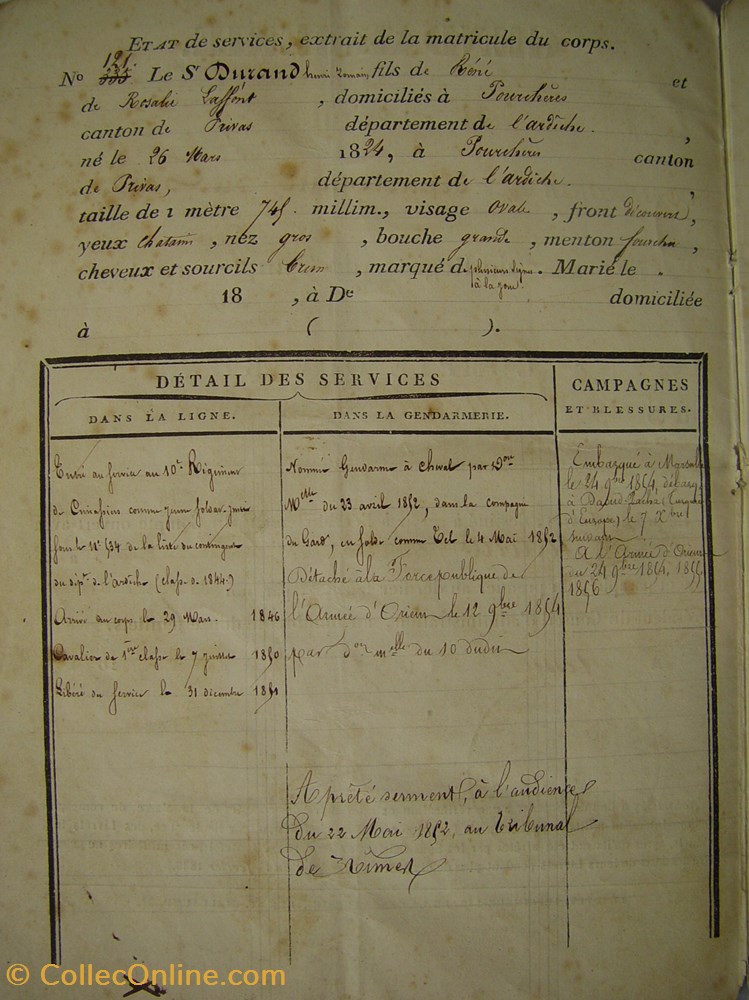 ETAT de services, extrait de la matricule du corps.
121.
No 333 Le Sr Durand henri Romain, fils de Réné et
de Rosalie Laffont, domiciliés à Pourchères
canton de Privas département de l'ardèche.,
né le 26 Mars 1824, à Pourchères canton
de Privas, département de l'ardèche.,
taille de 1 mètre 745. millim., visage ovale, front découvert,
yeux chatains, nez gros, bouche grande, menton fourchu,
cheveux et sourcils brun, marqué de plusieurs signes. Marié le
à la joue
18 , à De domiciliée
à ( ).
DÉTAIL DES SERVICES
DANS LA LIGNE.
Entré au service au 10e Régiment
de Cuirassiers comme jeune soldat
sous le No 534 de la liste du contingent
du dépt de l'ardèche (classe de 1844.)
Arrivé au corps le 29 Mars. 1846
Cavalier de 1ère classe le 7 juillet 1850
Libéré du service le 31 décembre 1851
DANS LA GENDARMERIE.
Nommé Gendarme à cheval par Don
Melle du 23 avril 1852, dans la compagnie
du Gard, en solde comme tel le 4 Mai 1852
Détaché à la Force publique de
l'Armée d'Orient le 12 9bre 1854
par don melle du 10 dudit
A prêté serment, à l'audience
du 22 Mai 1852, au tribunal
de Nimes
CAMPAGNES
ET BLESSURES.
Embarqué à Marseille
le 24 9bre 1854, débarq.
à Daoud-Pacha (Turquie
d'Europe) le 7 Xbre
suivant.
A l'Armée d'Orient
du 24 9bre 1854, 1855
1856
© CollecOnline.com